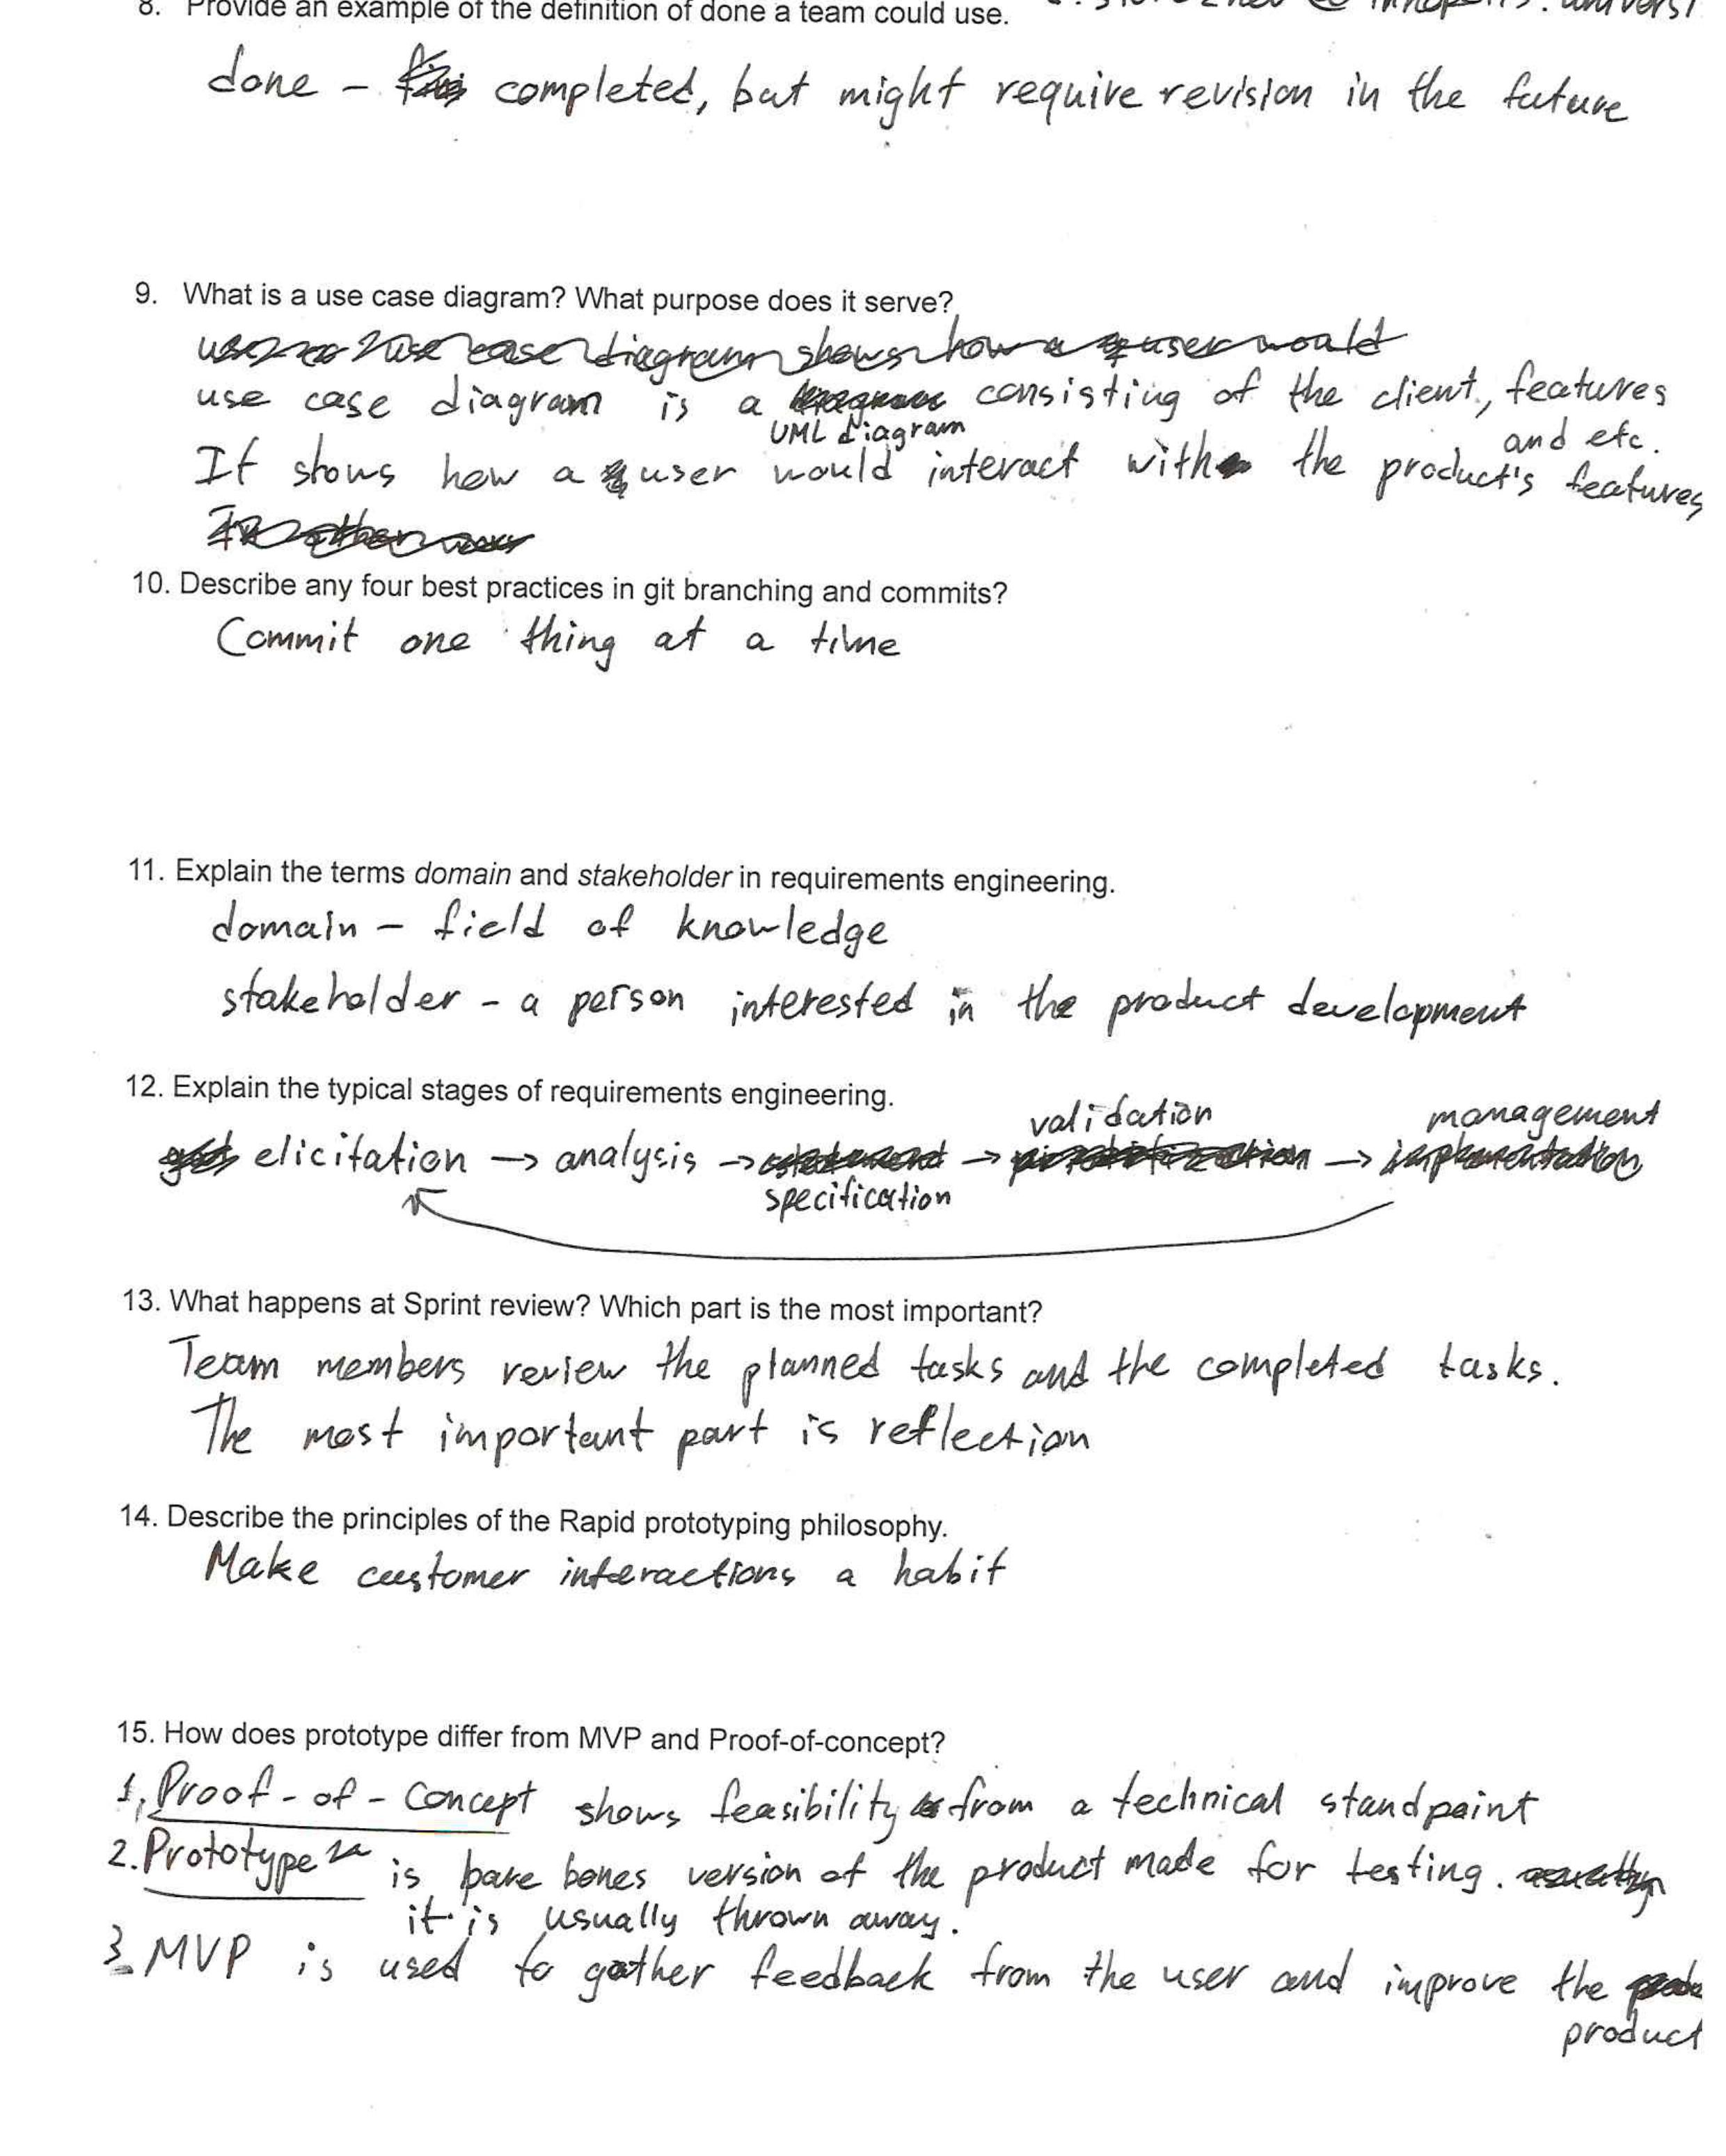 8. Provide an example of the definition of done a team could use.
done - completed, but might require revision in the future
9. What is a use case diagram? What purpose does it serve?
use case diagram shows how a user would
use case diagram is a UML diagram consisting of the client, features
and etc.
It shows how a user would interact with the product's features
In other
10. Describe any four best practices in git branching and commits?
Commit one thing at a time
11. Explain the terms domain and stakeholder in requirements engineering.
domain - field of knowledge
stakeholder - a person interested in the product development
12. Explain the typical stages of requirements engineering.
validation management
elicitation → analysis → → →
specification
13. What happens at Sprint review? Which part is the most important?
Team members review the planned tasks and the completed tasks.
The most important part is reflection
14. Describe the principles of the Rapid prototyping philosophy.
Make customer interactions a habit
15. How does prototype differ from MVP and Proof-of-concept?
1. Proof-of-Concept shows feasibility from a technical standpoint
2. Prototype is bare bones version of the product made for testing.
it is usually thrown away.
3. MVP is used to gather feedback from the user and improve the
product